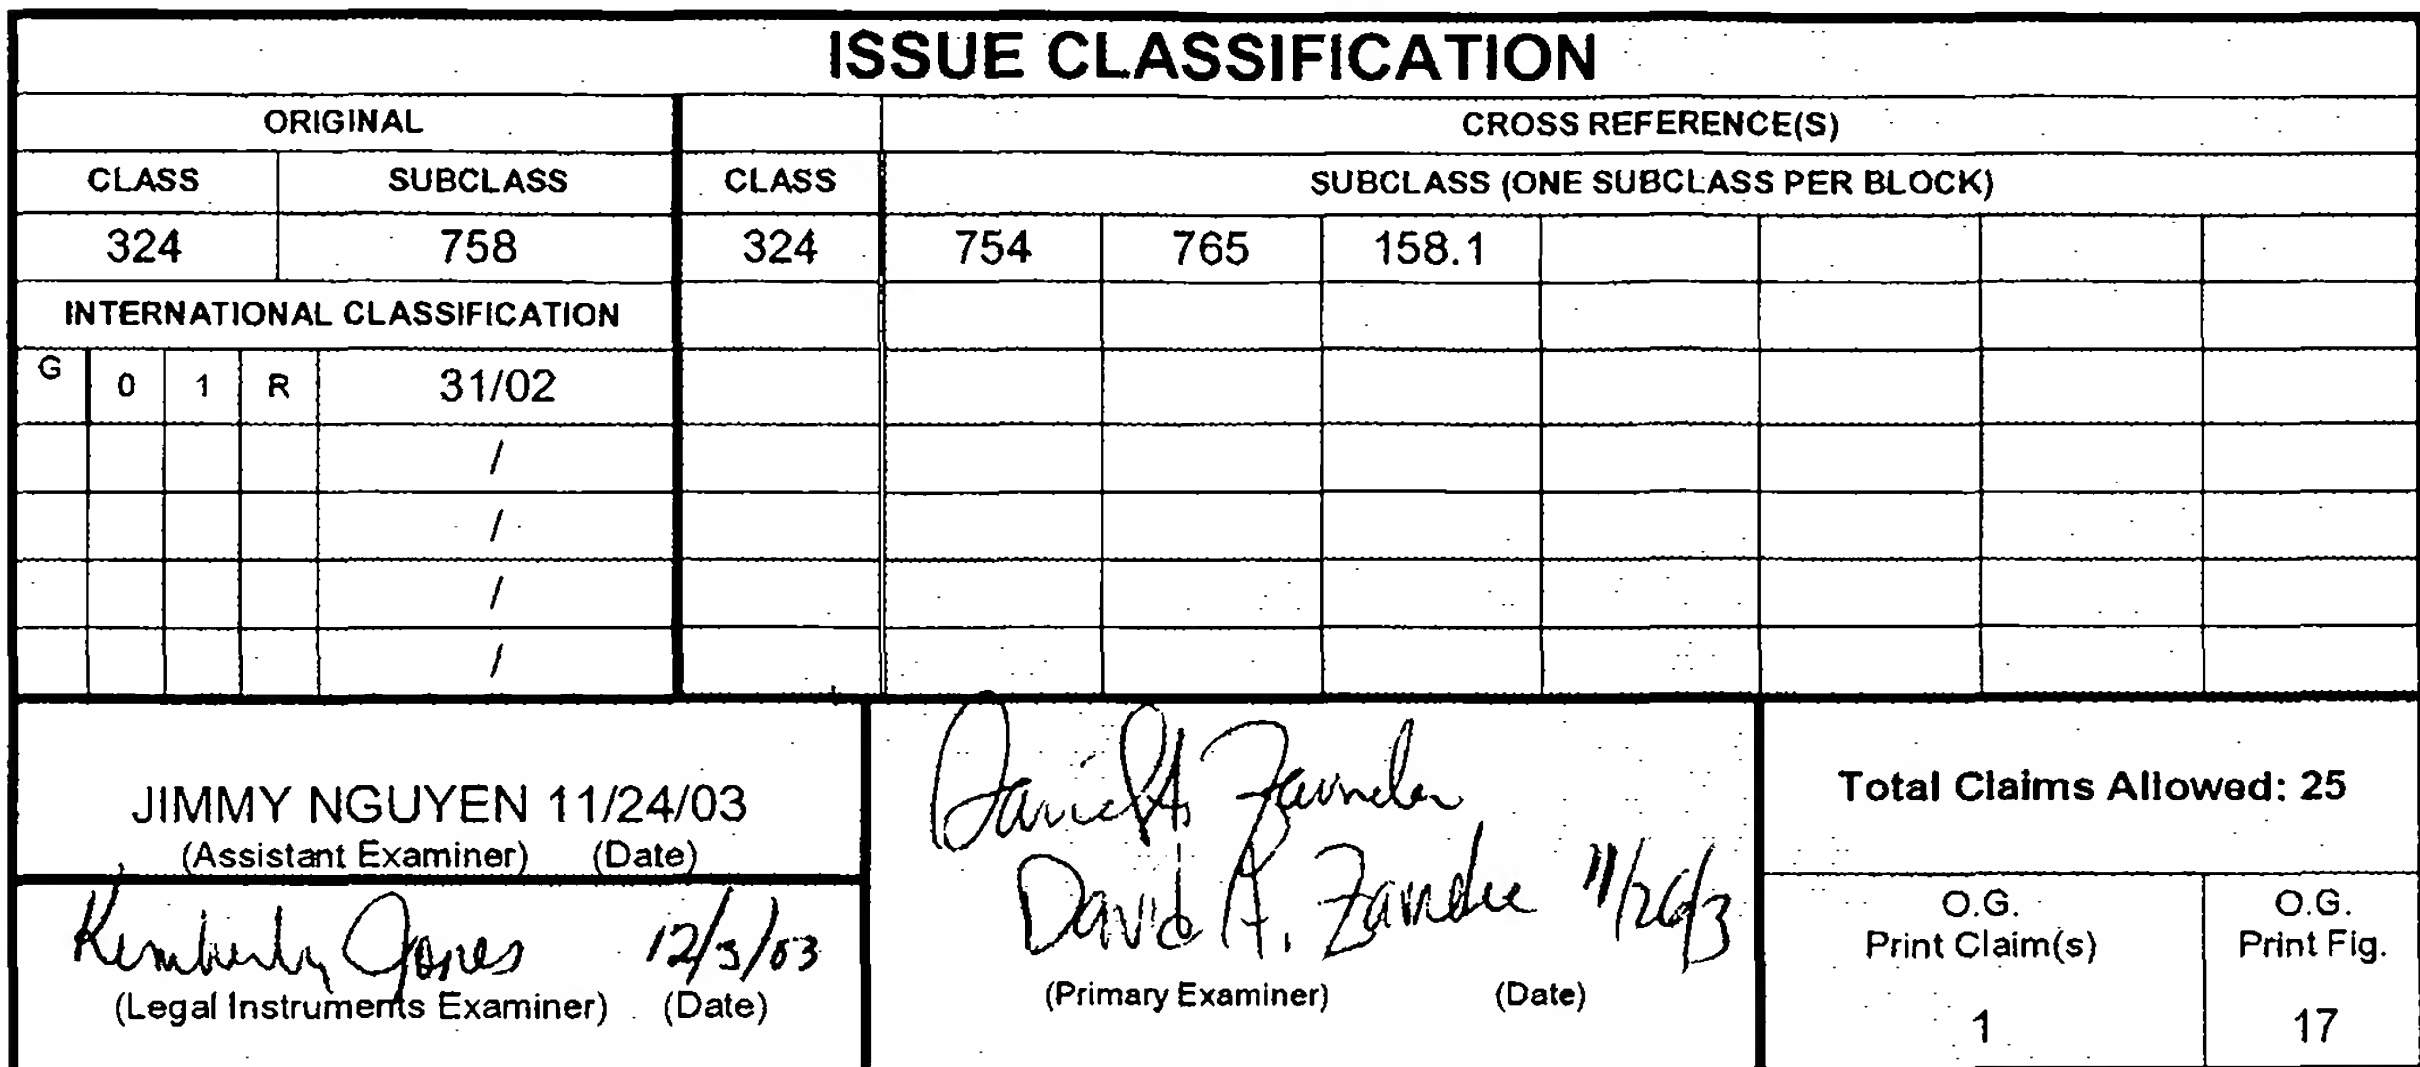 ISSUE CLASSIFICATION
ORIGINAL
CROSS REFERENCE(S)
CLASS SUBCLASS CLASS SUBCLASS (ONE SUBCLASS PER BLOCK)
324 758 324 754 765 158.1
INTERNATIONAL CLASSIFICATION
G 0 1 R 31/02
/
/
/
/
JIMMY NGUYEN 11/24/03
(Assistant Examiner) (Date)
Kimberly Jones 12/3/03
(Legal Instruments Examiner) (Date)
David A.
(Primary Examiner) (Date)
Total Claims Allowed: 25
O.G.
Print Claim(s)
1
O.G.
Print Fig.
17